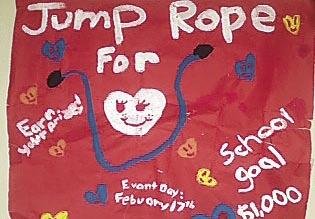 Jump Rope
For
Earn
your prizes!
School
goal
$1,000
Event Day:
Febuary 17th